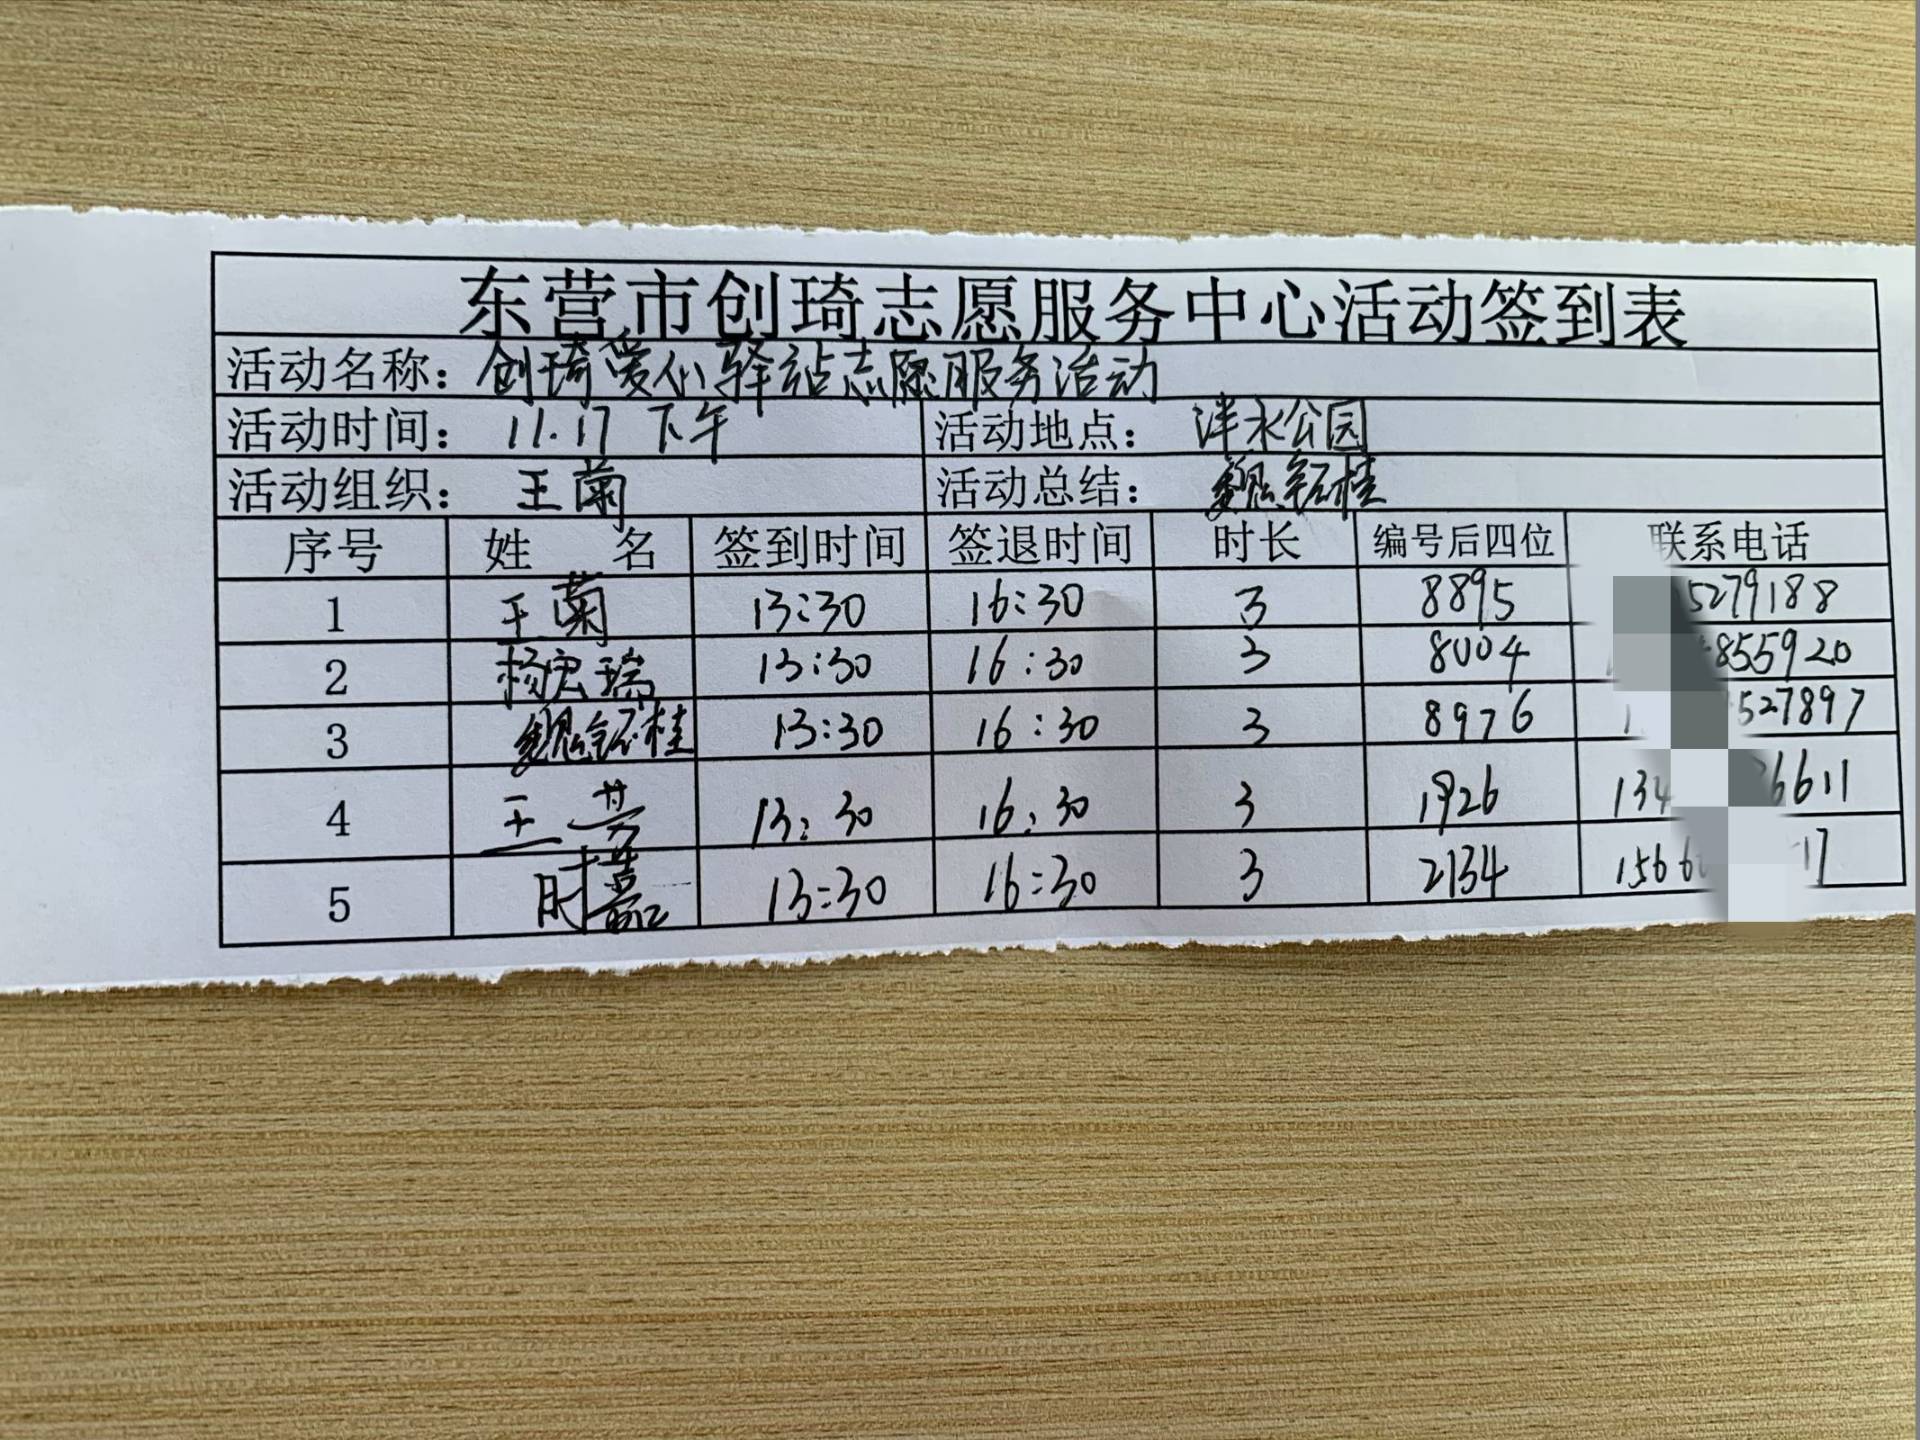 东营市创琦志愿服务中心活动签到表
活动名称：创琦爱心驿站志愿服务活动
活动时间：11.17 下午 活动地点：泮水公园
活动组织：王菊 活动总结：魏桂
序号 姓 名 签到时间 签退时间 时长 编号后四位 联系电话
1 王菊 13:30 16:30 3 8895 5279188
2 杨宏瑞 13:30 16:30 3 8004 855920
3 魏桂 13:30 16:30 3 8976 527897
4 王芳 13:30 16:30 3 1926 134 6611
5 时嘉 13:30 16:30 3 2134 1566 17